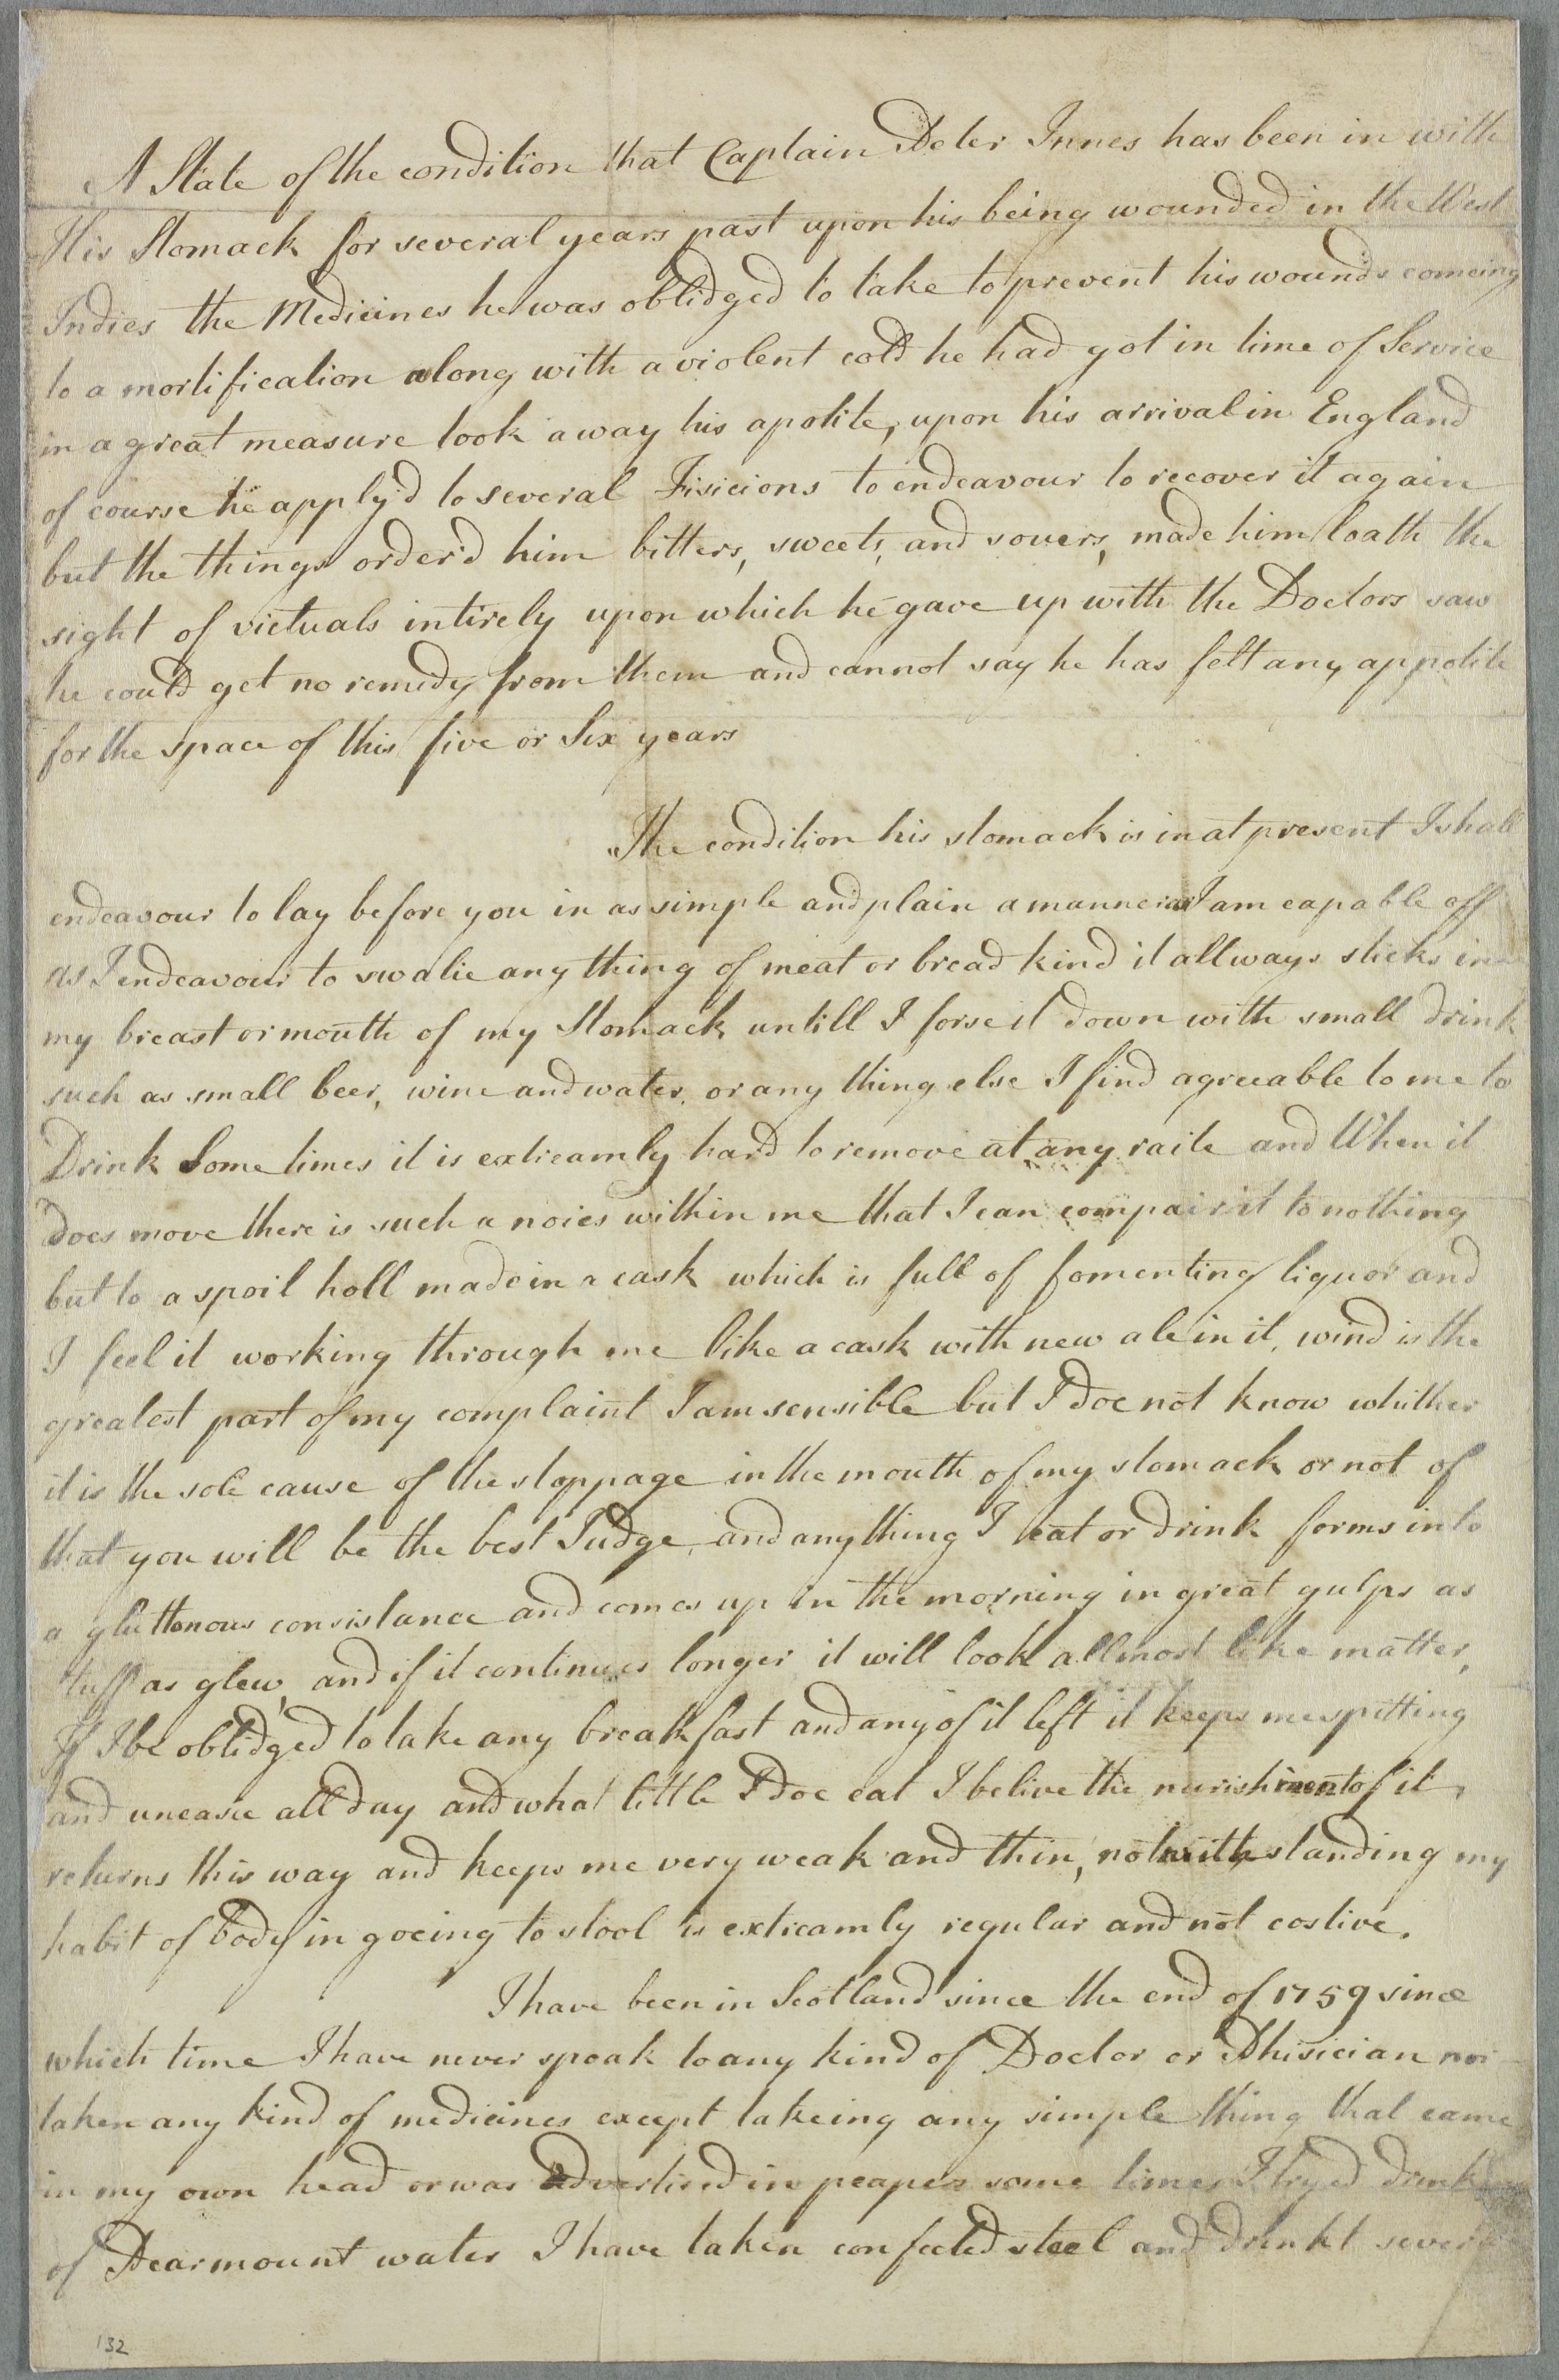 A State of the condition that Captain Peter Innes has been in with
His Stomack for several years past upon his being wounded in the West
Indies the Medicines he was oblidged to take to prevent his wounds comeing
to a mortification along with a violent cold he had got in time of Service
in a great measure took away his apotite, upon his arrival in England
of course he apply'd to several Fisicions to endeavour to recover it again
but the things order'd him bitters, sweets, and souers, made him loath the
sight of victuals intirely upon which he gave up with the Doctors saw
he could get no remedy from them and cannot say he has felt any appotite
for the space of this five or Six years
The condition his stomack is in at present I shall
endeavour to lay before you in as simple and plain a manner as I am capable off
as I endeavour to swalie any thing of meat or bread kind it allways sticks in
my breast or mouth of my Stomack untill I forse it down with small drink
such as small beer, wine and water, or any thing else I find agreeable to me to
Drink Some times it is extreamly hard to remove at any raite and When it
does move there is such a noies within me that I can compair it to nothing
but to a spoil holl made in a cask which is full of fomenting liquor and
I feel it working through me like a cask with new ale in it, wind is the
greatest part of my complaint I am sensible but I doe not know whither
it is the sole cause of the stoppage in the mouth of my stomack or not of
that you will be the best Judge, and any thing I eat or drink forms into
a gluttonous consistance and comes up in the morning in great gulps as
tuff as glew, and if it continues longer it will look allmost like matter,
If I be oblidged to take any breakfast and any of it left it keeps me spitting
and uneasie all day and what little I doe eat I belive the nurishment of it
returns this way and keeps me very weak and thin, notwithstanding my
habit of body in goeing to stool is extreamly regular and not costive.
I have been in Scotland since the end of 1759 since
which time I have never spoak to any kind of Doctor or Phisician nor
taken any kind of medicines except takeing any simple thing that came
in my own head or was advertised in peapers some times I tryed
of Pearmount water I have taken confected steel and drinkt
132